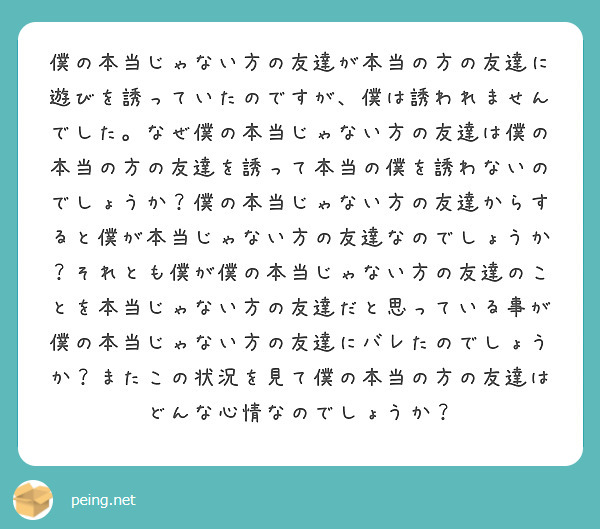 僕の本当じゃない方の友達が本当の方の友達に
遊びを誘っていたのですが、僕は誘われません
でした。なぜ僕の本当じゃない方の友達は僕の
本当の方の友達を誘って本当の僕を誘わないの
でしょうか？僕の本当じゃない方の友達からす
ると僕が本当じゃない方の友達なのでしょうか
？それとも僕が僕の本当じゃない方の友達のこ
とを本当じゃない方の友達だと思っている事が
僕の本当じゃない方の友達にバレたのでしょう
か？またこの状況を見て僕の本当の方の友達は
どんな心情なのでしょうか？
peing.net